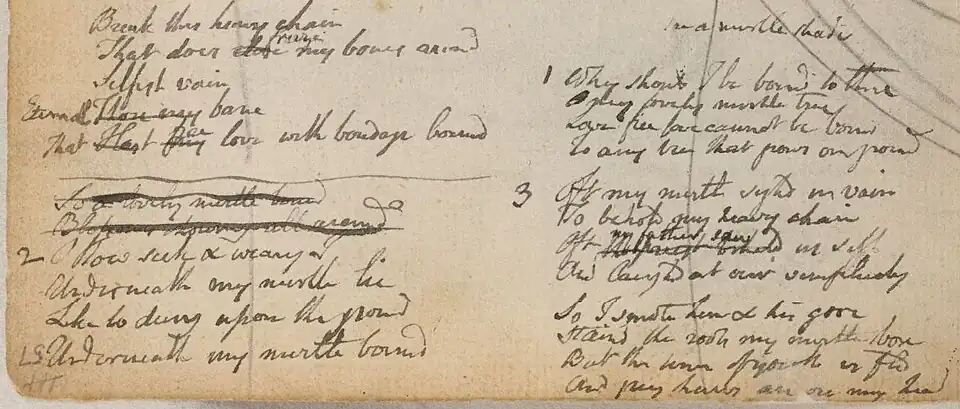 Break this heavy chain
That does close freeze my bones around
Selfish vain
Eternal Thou my bane
That Hast free love with bondage bound
To a lovely mirtle bound
Blossoms showring all around
2 O how sick & weary I
Underneath my mirtle lie
Like to dung upon the ground
Underneath my mirtle bound
In a mirtle shade
1 Why should I be bound to thee
O my lovely mirtle tree
Love free love cannot be bound
To any tree that grows on ground
3 Oft my mirtle sighd in vain
To behold my heavy chain
Oft my father saw us sigh
And laughd at our simplicity
So I smote him & his gore
Staind the roots my mirtle bore
But the time of youth is fled
And grey hairs are on my head